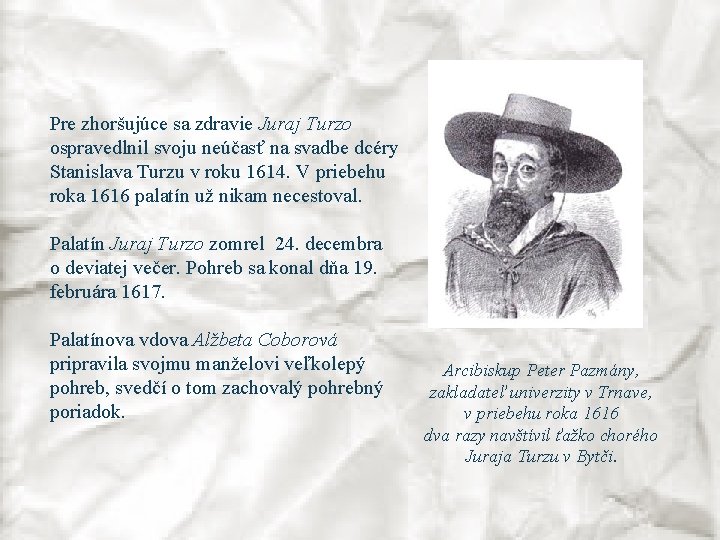 Pre zhoršujúce sa zdravie Juraj Turzo
ospravedlnil svoju neúčasť na svadbe dcéry
Stanislava Turzu v roku 1614. V priebehu
roka 1616 palatín už nikam necestoval.
Palatín Juraj Turzo zomrel 24. decembra
o deviatej večer. Pohreb sa konal dňa 19.
februára 1617.
Palatínova vdova Alžbeta Coborová
pripravila svojmu manželovi veľkolepý
pohreb, svedčí o tom zachovalý pohrebný
poriadok.
Arcibiskup Peter Pazmány,
zakladateľ univerzity v Trnave,
v priebehu roka 1616
dva razy navštívil ťažko chorého
Juraja Turzu v Bytči.